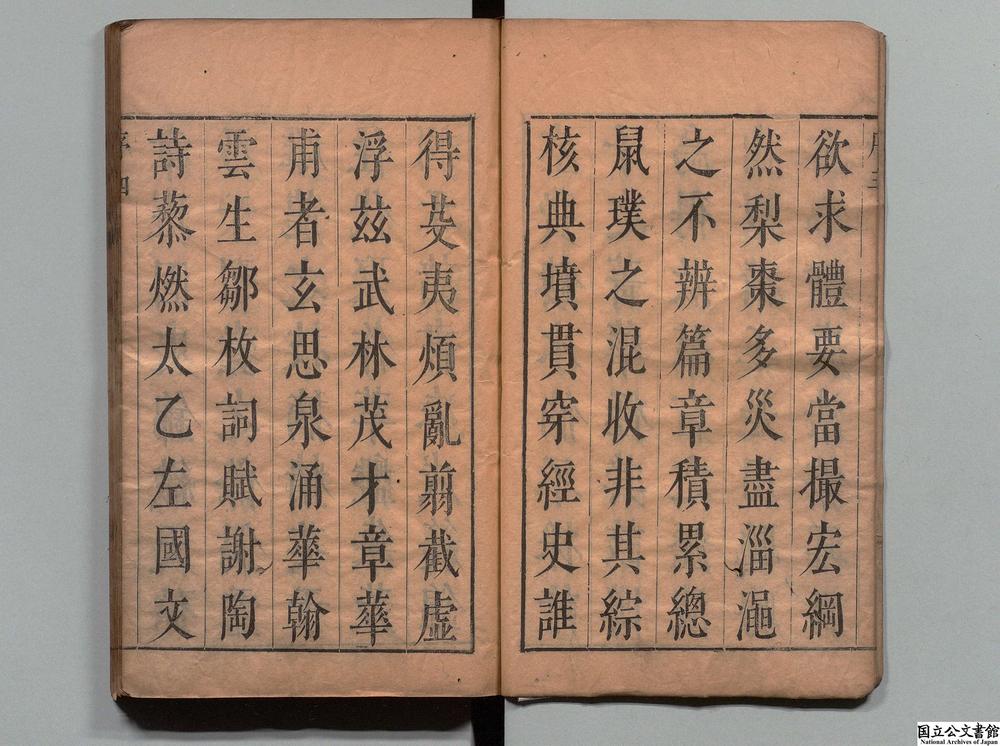 欲求體要當撮宏綱
然梨棗多災盡淄澠
之不辨篇章積累總
鼠璞之混收非其綜
核典墳貫穿經史誰
得芟夷煩亂翦截虛
浮茲武林茂才章華
甫者玄思泉涌華翰
雲生鄒枚詞賦謝陶
詩藜燃太乙左國文
国立公文書館
National Archives of Japan